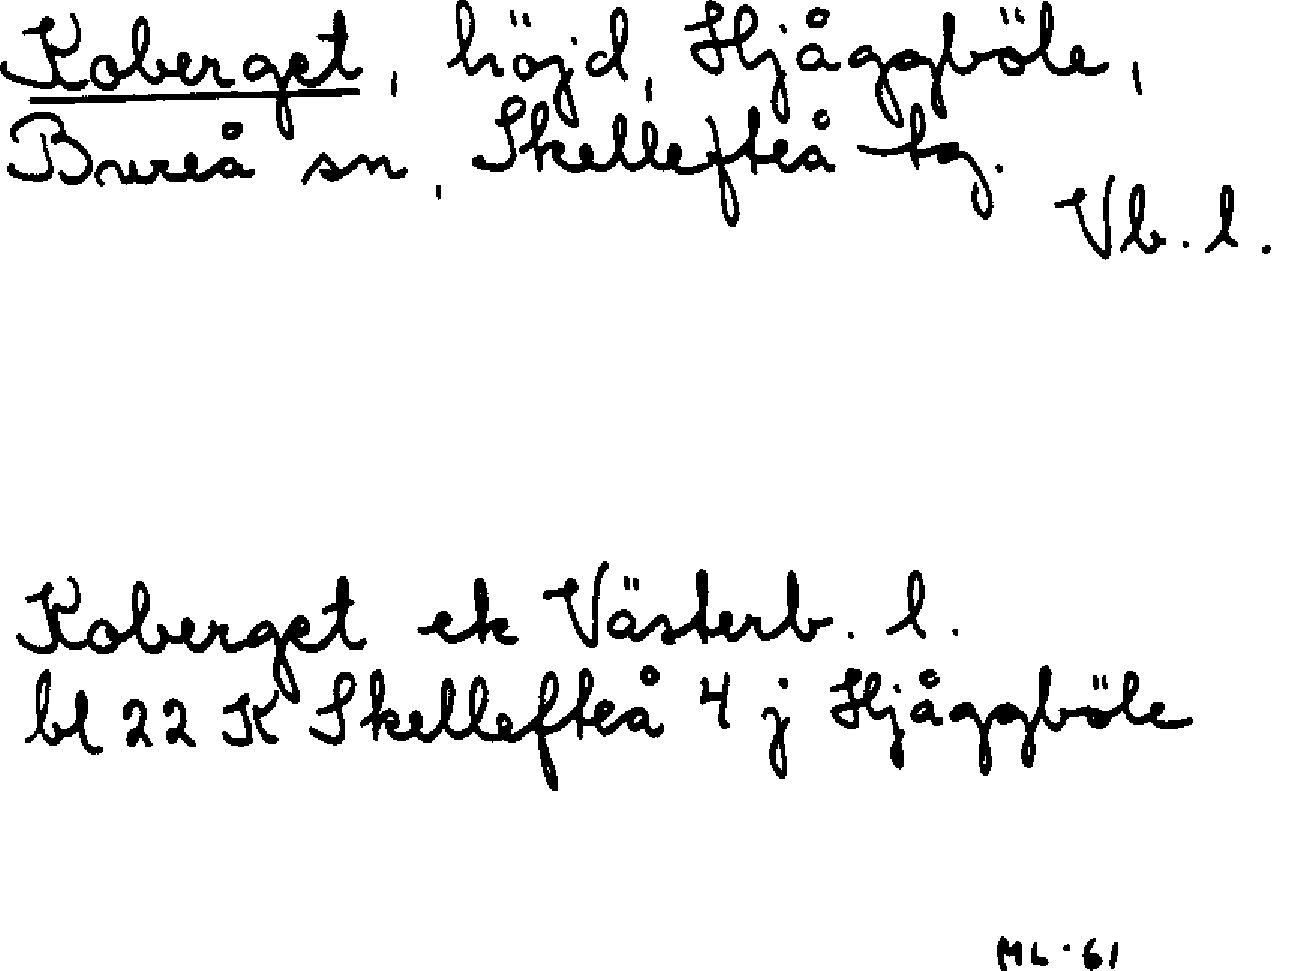 Koberget, höjd, Hjåggböle,
Bureå sn, Skellefteå tg.
Vb. l.
Koberget ek Västerb. l.
bl 22 K Skellefteå 4 j Hjåggböle
ML·61